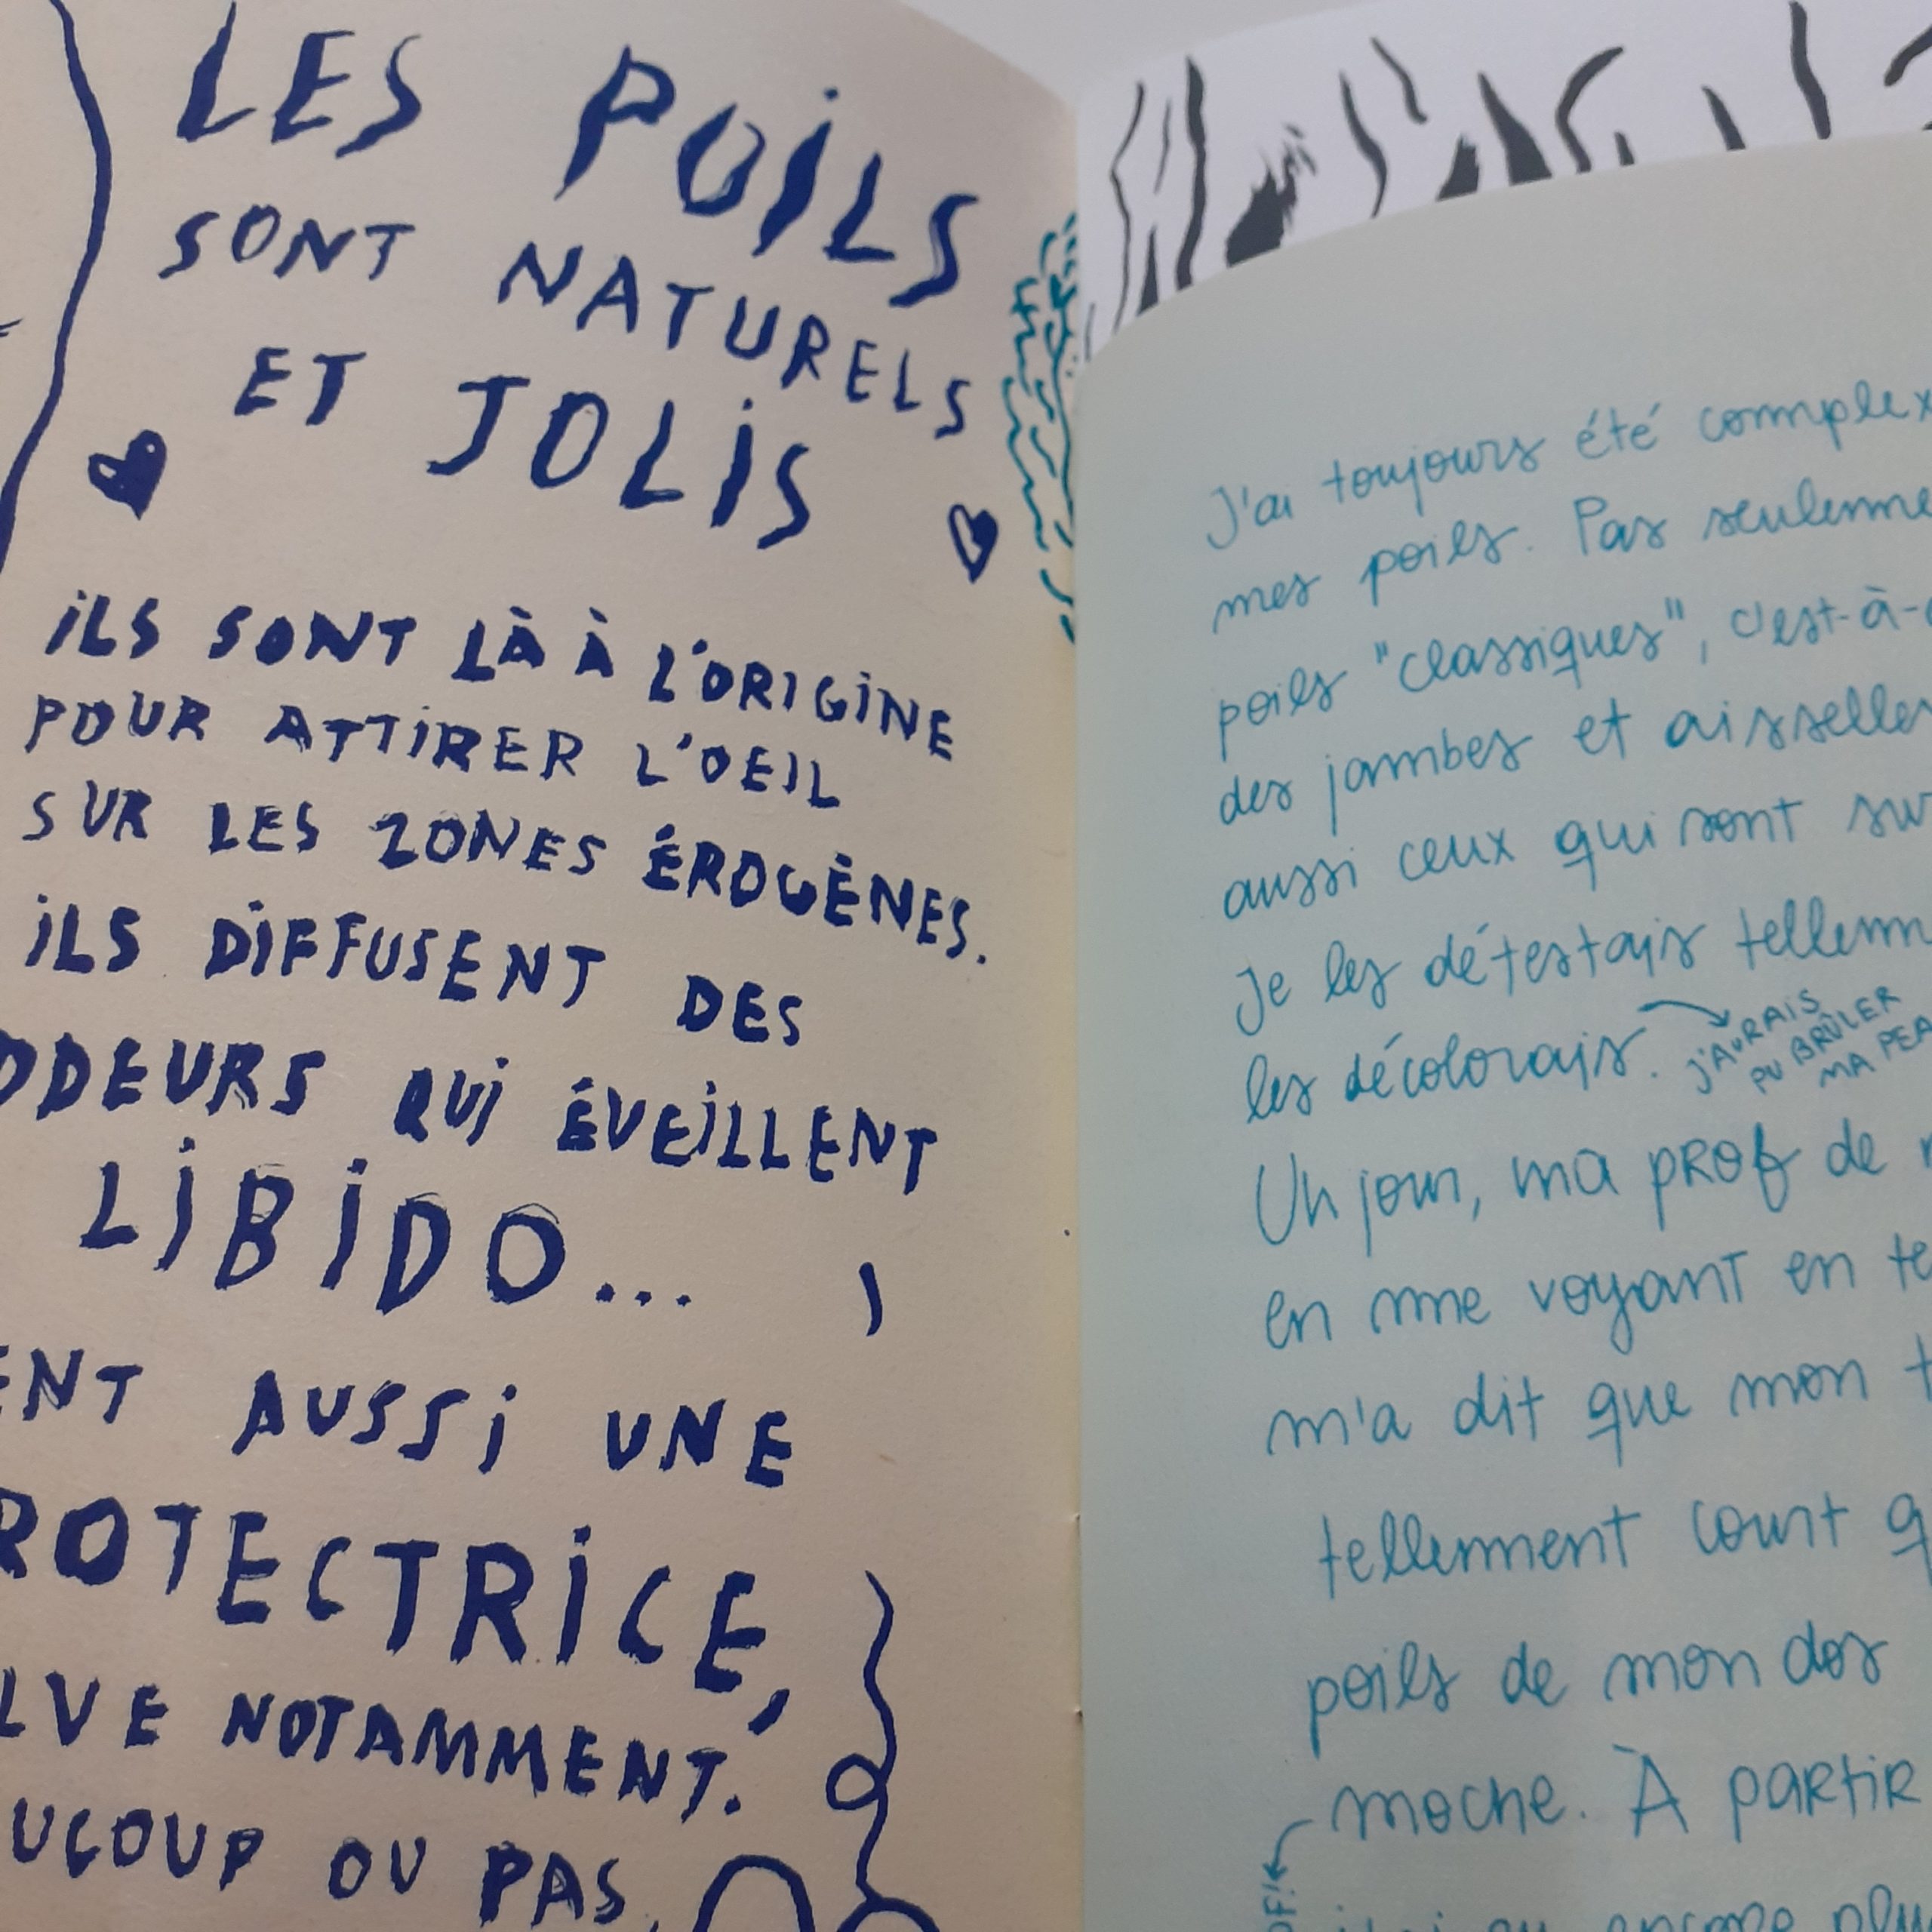 LES POiLS
SONT NATURELS
ET JOLiS
iLS SONT LÀ À L'ORIGiNE
POUR ATTiRER L'OEIL
SUR LES ZONES ÉROGÈNES.
iLS DiFFUSENT DES
ODEURS QUi ÉVEiLLENT
LiBiDO...
ENT AUSSi UNE
ROTECTRiCE,
LVE NOTAMMENT.
UCOUP OU PAS
J'ai toujours été complex
mes poils. Pas seuleme
poils "classiques", c'est-à-d
des jambes et aisselles
aussi ceux qui sont su
Je les détestais tellem
les décolorais.
J'AURAIS
PU BRÛLER
MA PEA
Un jour, ma prof de
en me voyant en te
m'a dit que mon t
tellement court q
poils de mon dos
moche. À partir